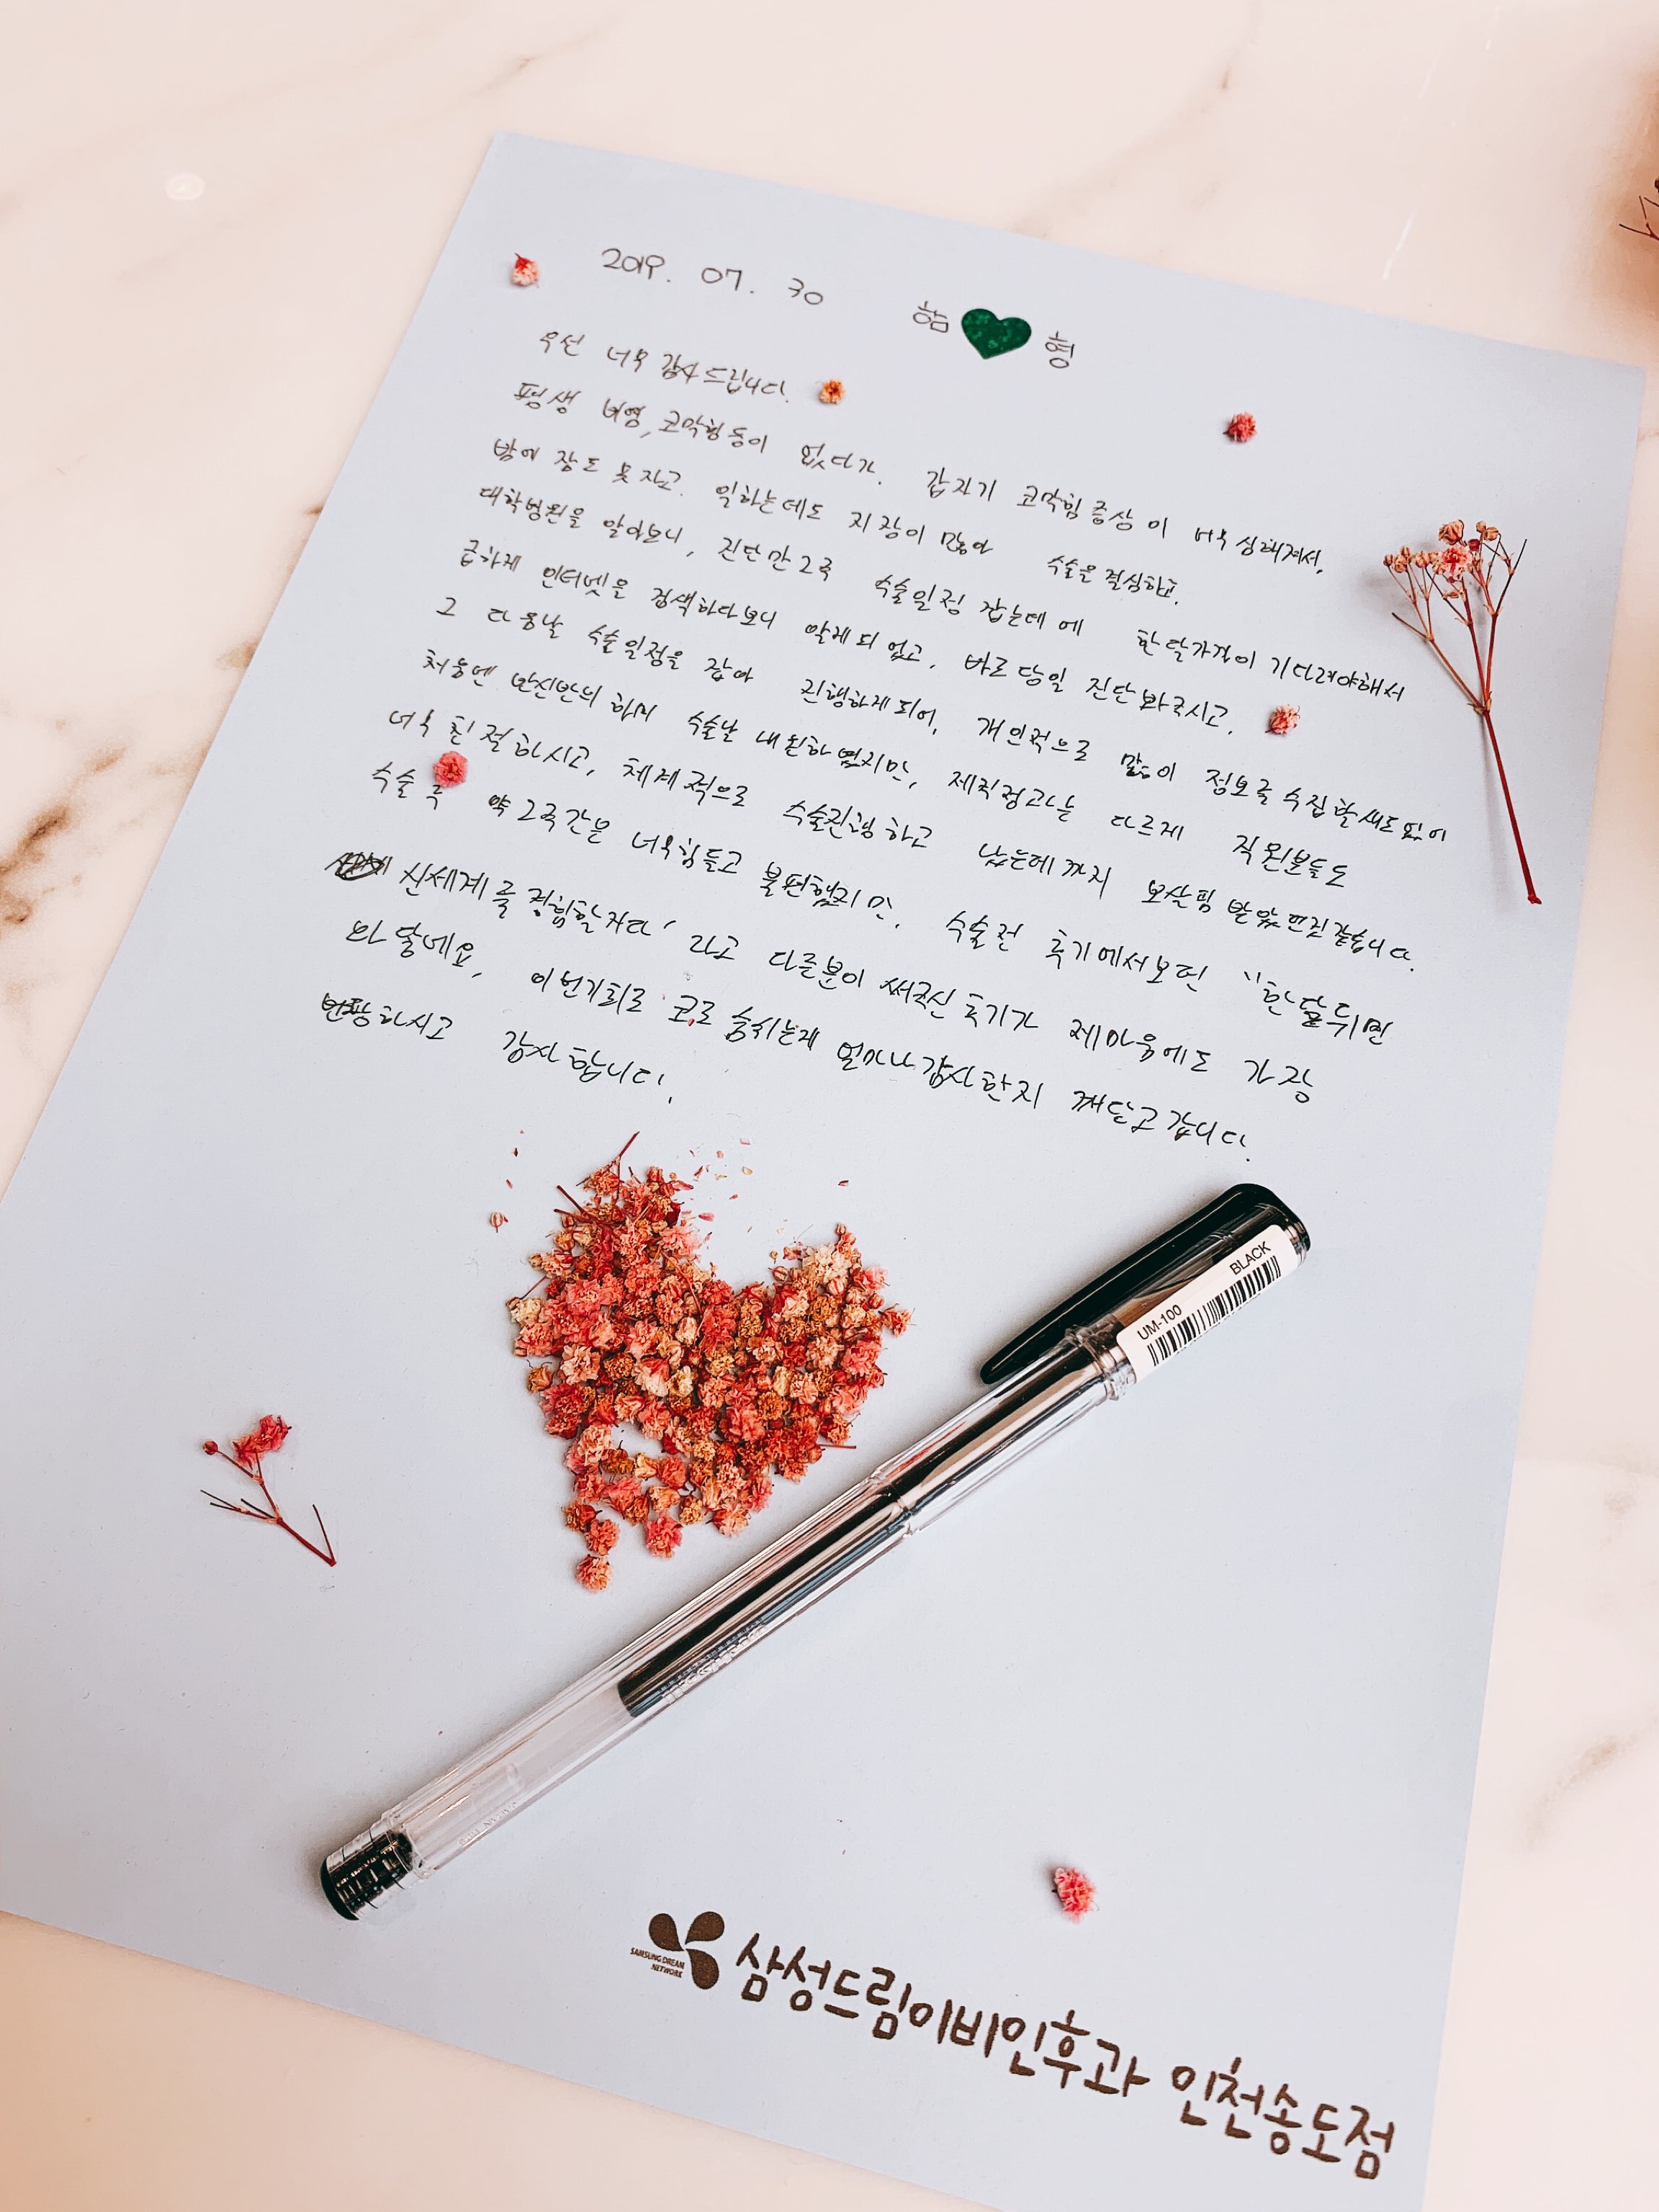 2019. 07. 30 함 형
우선 너무 감사드립니다.
평생 비염, 코막힘 등이 없다가. 갑자기 코막힘 증상이 너무 심해져서,
밤에 잠도 못자고. 일하는데도 지장이 많아 수술을 결심하고.
대학병원을 알아보니, 진단만 2주 수술일정 잡는데에 한달가량이 기다려야해서
급하게 인터넷을 검색하다보니 알게되었고, 바로 당일 진단봐주시고.
그 다음날 수술일정을 잡아 진행하게되어, 개인적으로 많이 정보를 수집할새도 없이
처음엔 반신반의 하며 수술날 내원하였지만, 제걱정과는 다르게 직원분들도
너무 친절하시고, 체계적으로 수술진행하고 났는데까지 보살핌 받았던것같습니다.
수술 후 약 2주간은 너무힘들고 불편했지만. 수술전 후기에서보던 "한달뒤면
신세계를 경험할거다' 라고 다른분이 써주신 후기가 제마음에도 가장
와닿네요, 이번기회로 코로 숨쉬는게 얼마나 감사한지 깨닫고갑니다.
번창하시고 감사합니다.
BLACK
UM-100
SAMSUNG DREAM
NETWORK
삼성드림이비인후과 인천송도점